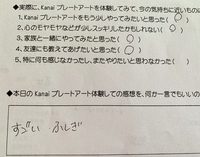 ◆実際に、Kanai プレートアートを体験してみて、今の気持ちに近いもの
1、Kanai プレートアートをもう少しやってみたいと思った(○)
2、心のモヤモヤなどが少しスッキリしたかもしれない(○)
3、家族と一緒にやってみたと思った(○)
4、友達にも教えてあげたいと思った(○)
5、特に何も感じなかったし、またやりたいと思わなかった(
◆本日の Kanai プレートアート体験しての感想を、何か一言でもいいの
すごい ふしぎ